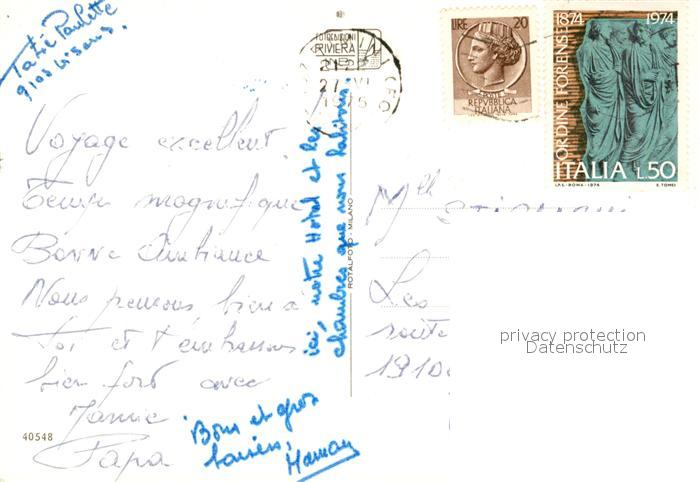 Tatie Paulette
gros bisous.
Voyage excellent
Temps magnifique
Bonne Ambiance
Nous pensons bien à
toi et t'embrassons
bien fort avec
Mamie
Papa
Bons et gros
baisers,
Maman
ici, notre Hotel et les
chambres que nous habitons.
40548
ROTALFOTO - MILANO
RIVIERA
27 VI
1975
LIRE 20
REPVBBLICA
ITALIANA
1874 1974
ORDINE FORENSE
ITALIA L.50
I.P.S.-ROMA-1974 E. TOMEI
Mlle
Les
route
1910
privacy protection
Datenschutz